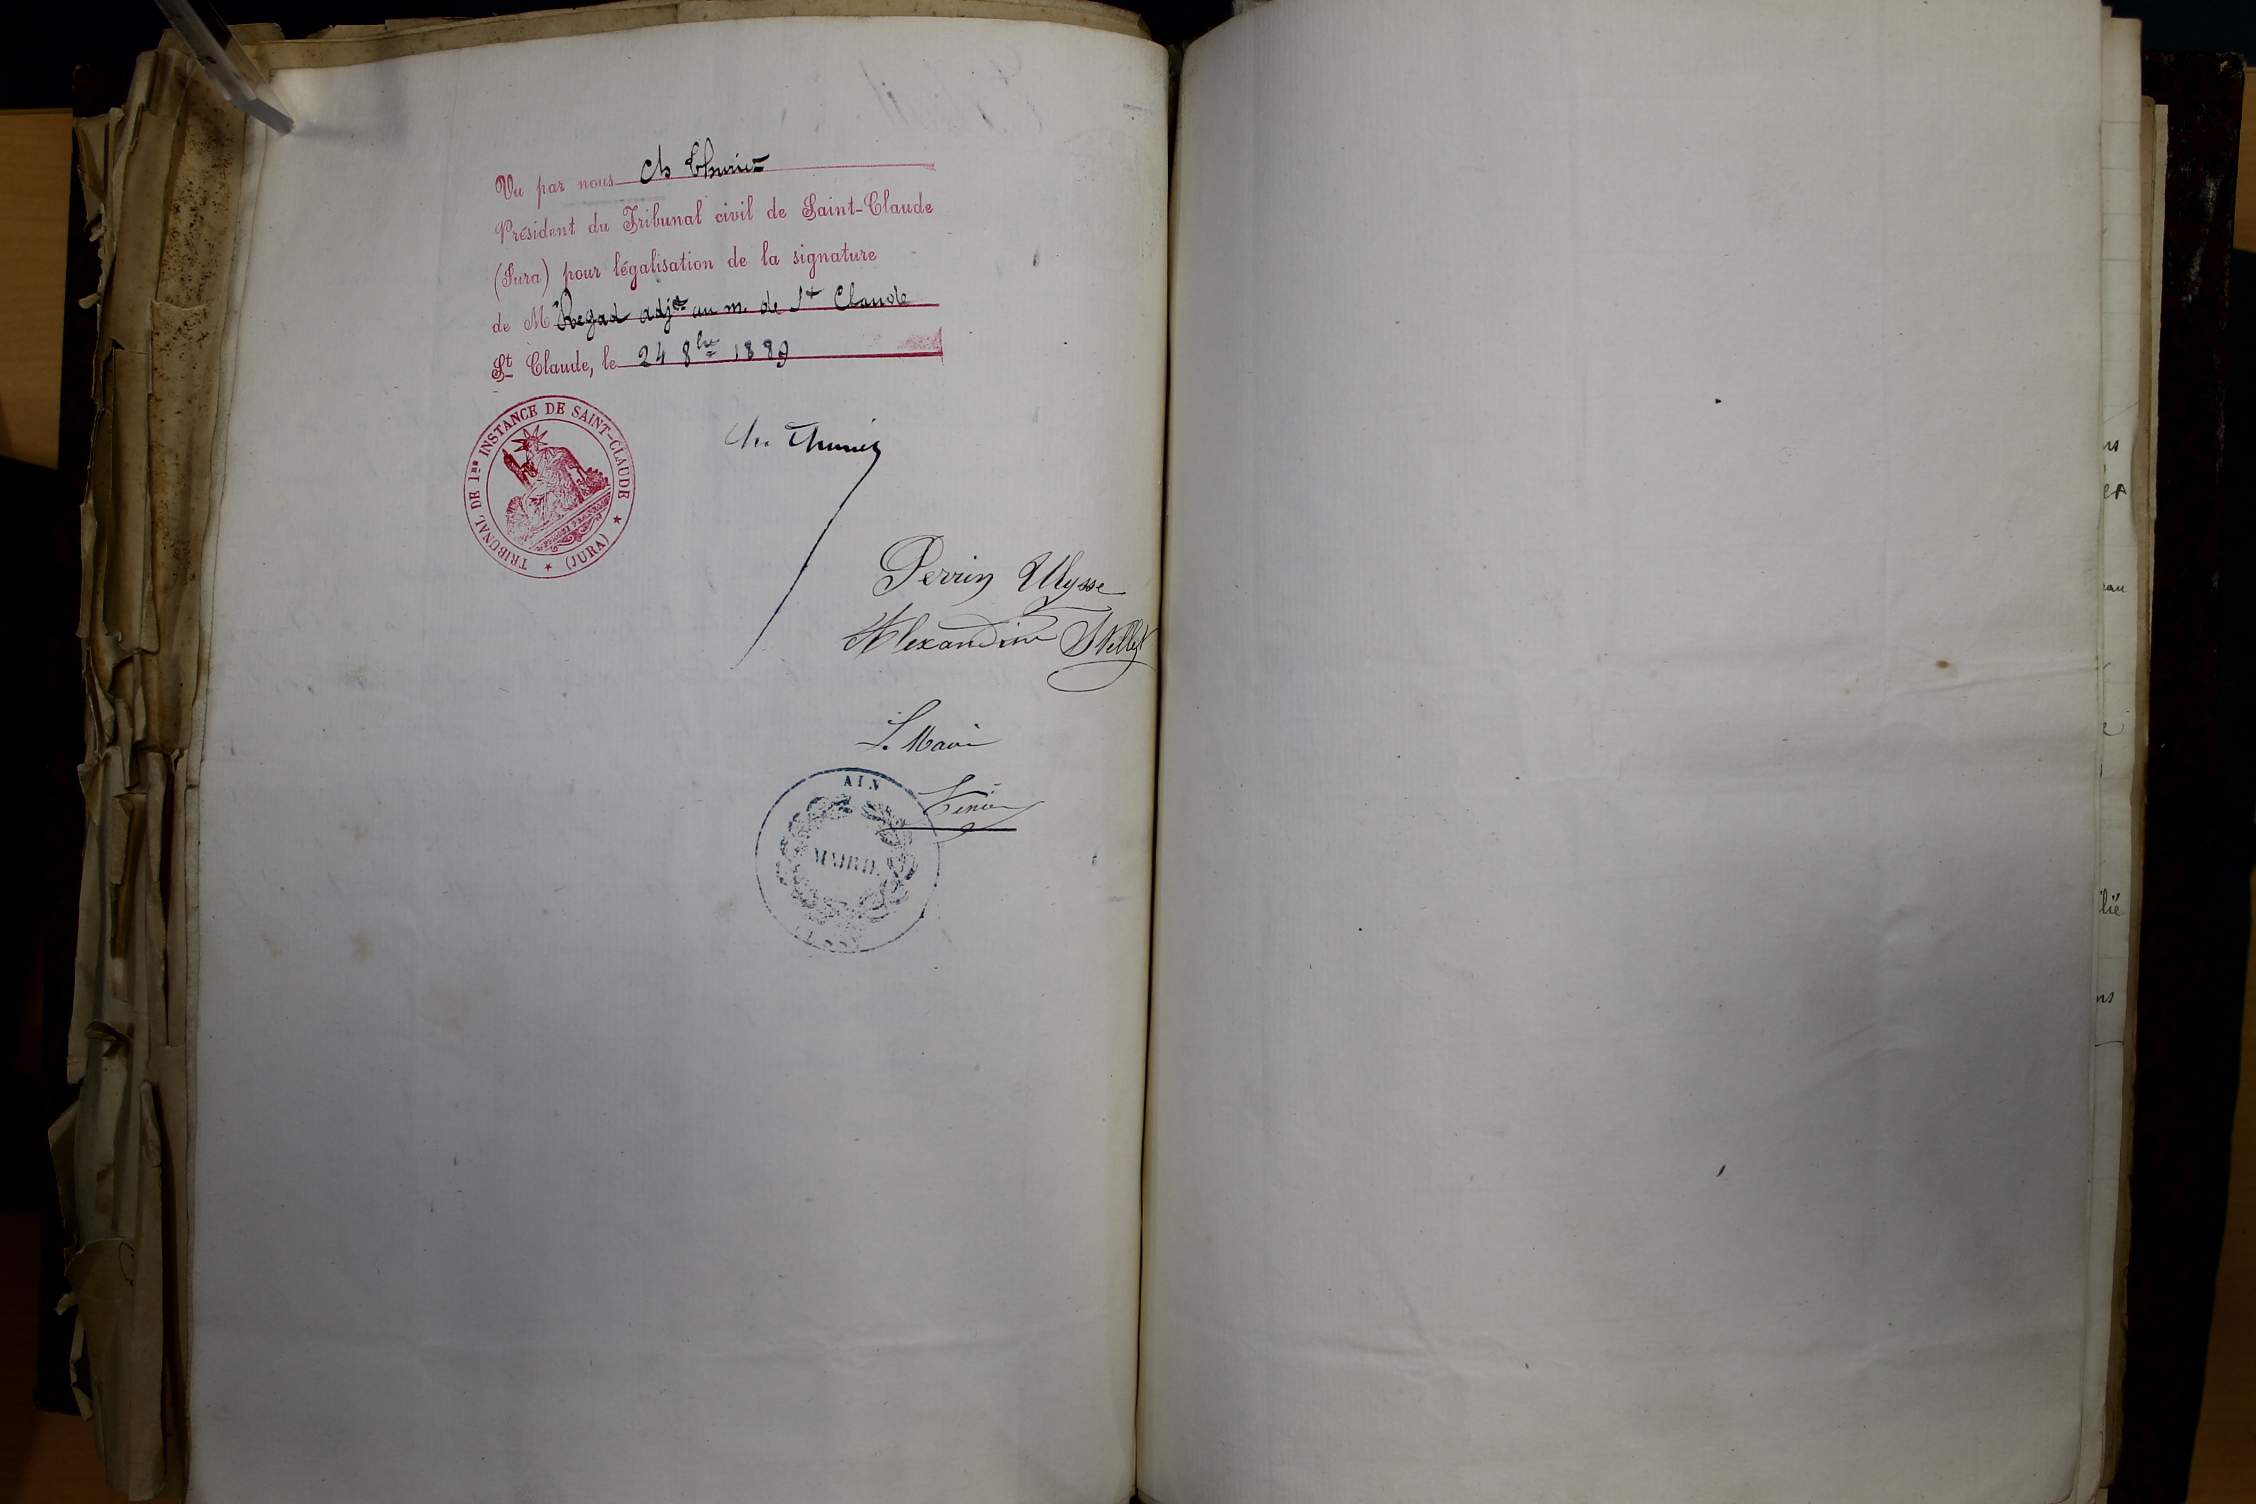 Vu par nous Ch Thuriet
Président du Tribunal civil de Saint-Claude
(Jura) pour légalisation de la signature
de M Regad adjt au m. de St Claude
St Claude, le 24 8bre 1889
TRIBUNAL DE 1re INSTANCE DE SAINT-CLAUDE
★ (JURA) ★
Ch. Thuriet
Perrin Ulysse
Alexandrine
L. Mavi
AIN
MAIRIE
ns
lié
ns